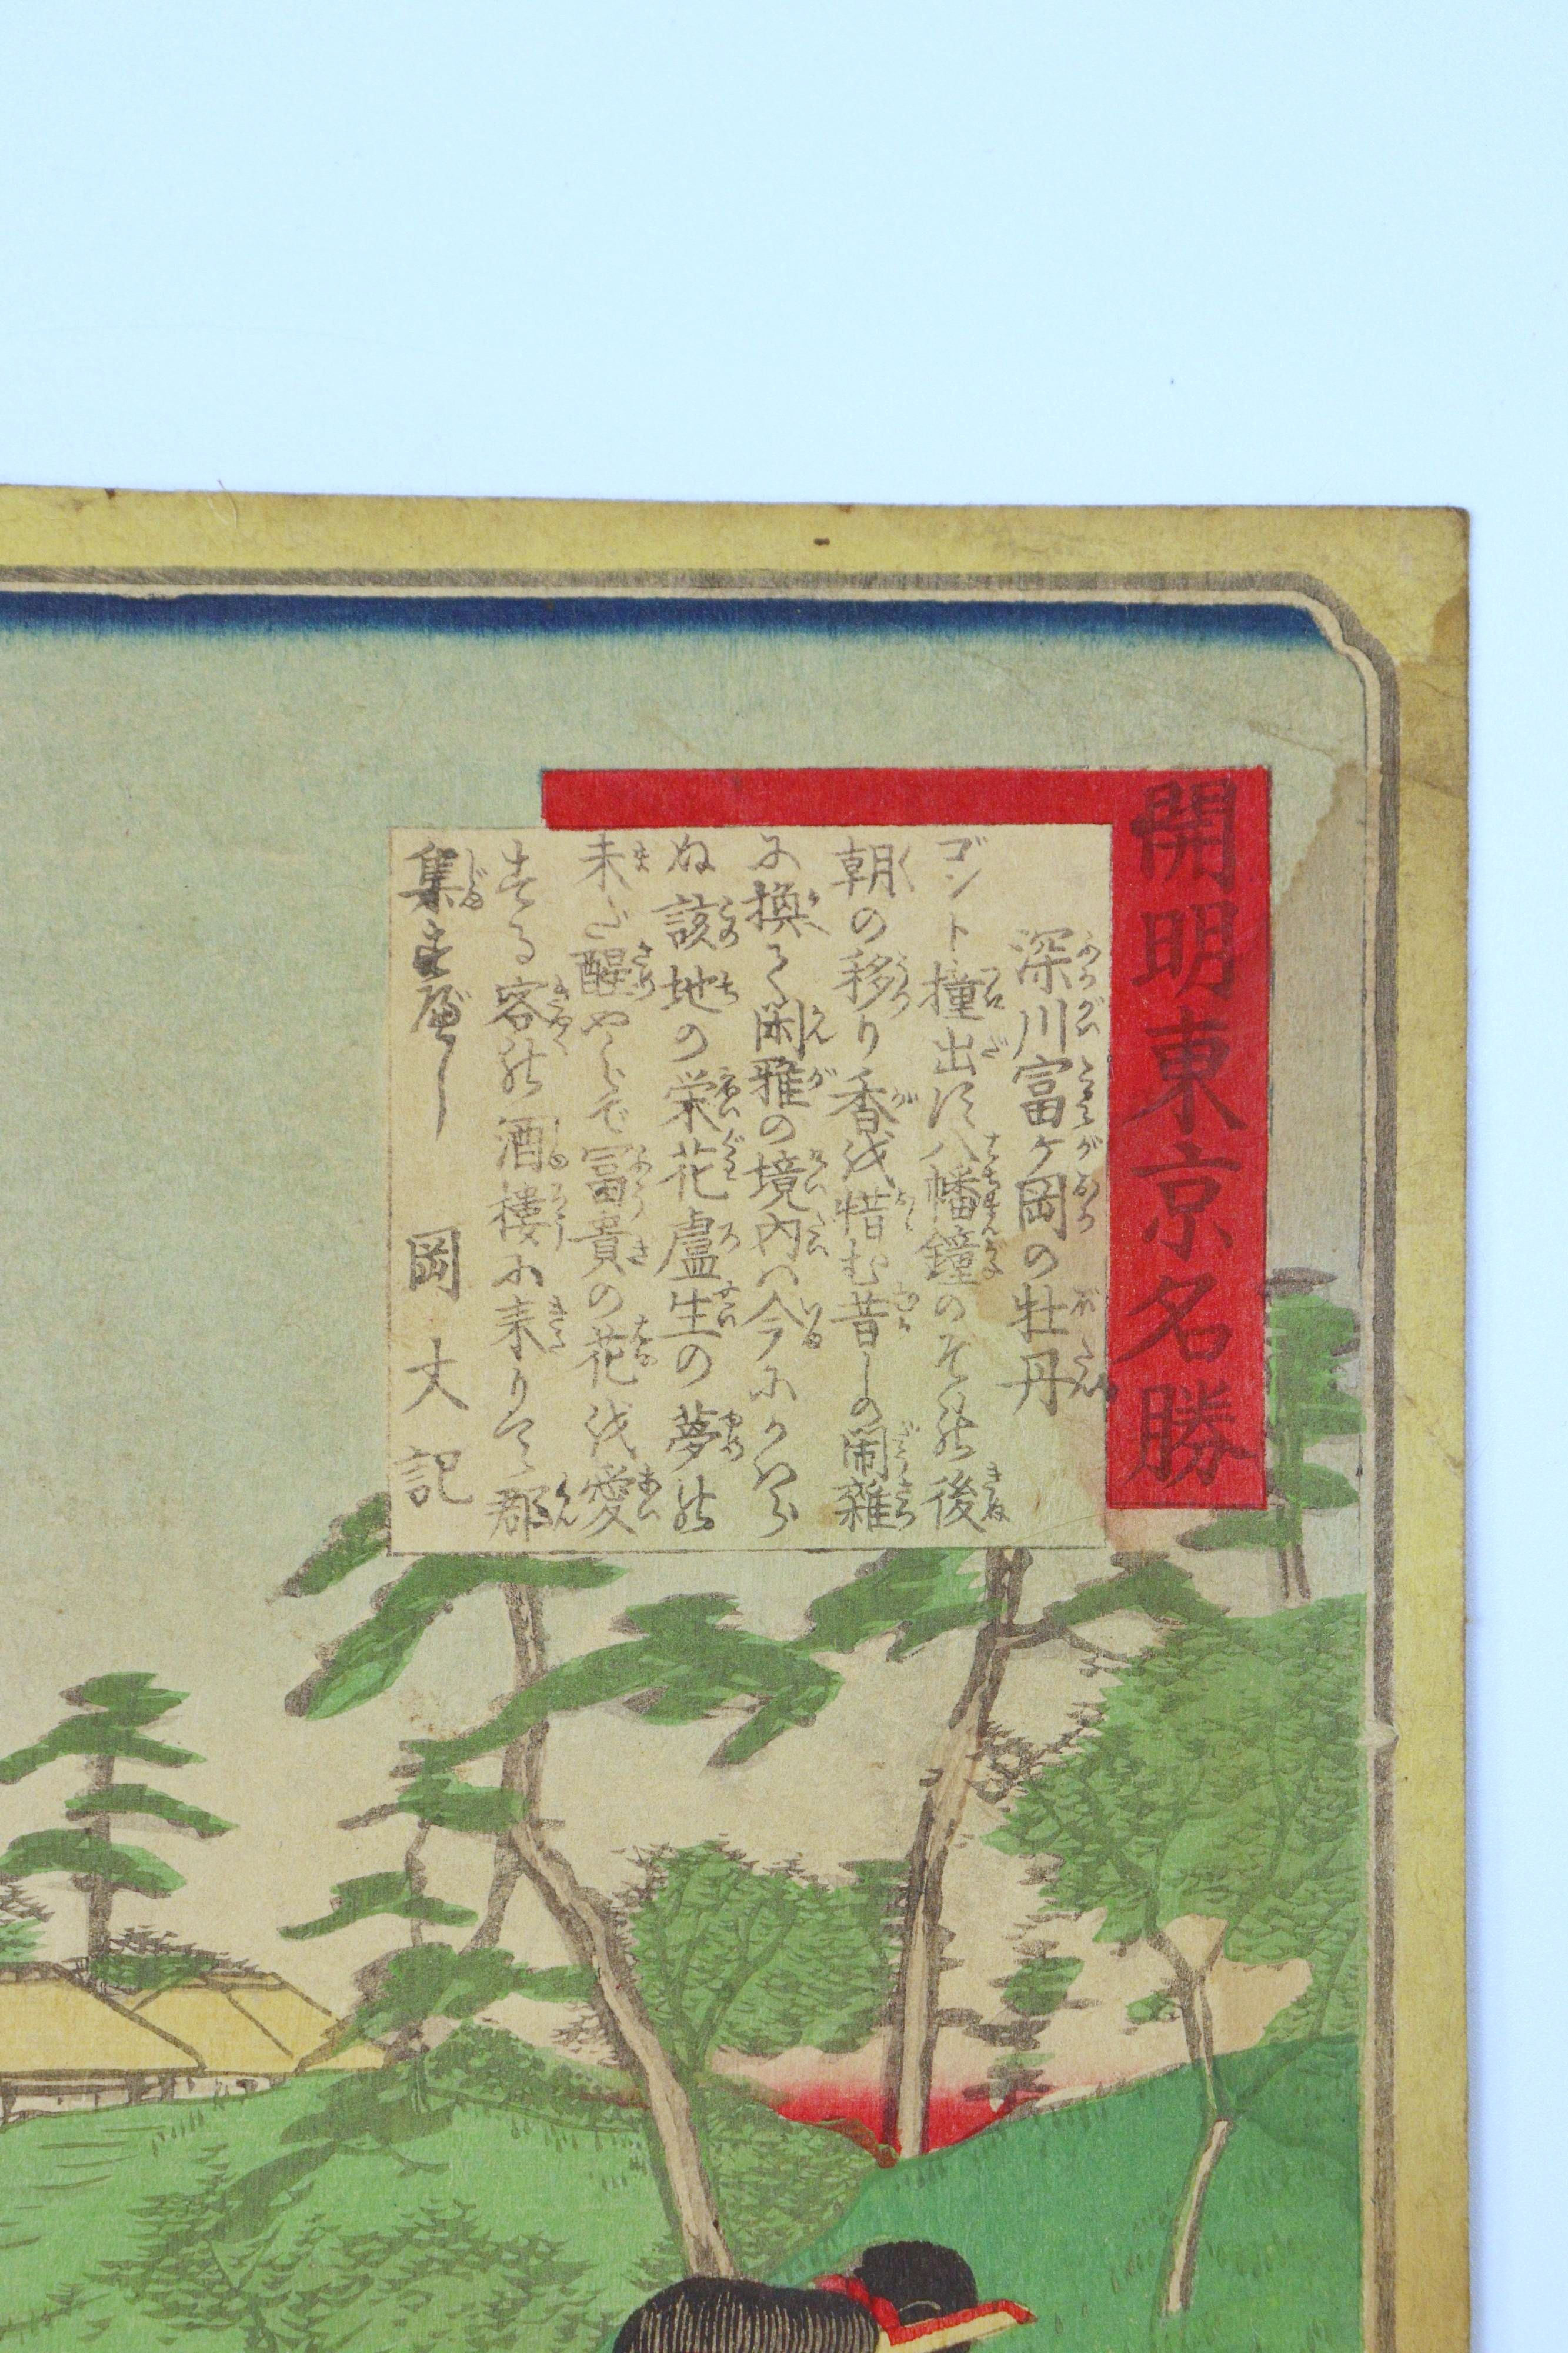 開明東京名勝
深川富ヶ岡の牡丹
ゴント撞出す八幡鐘のその後
朝の移り香を惜む昔しの閙雑
に換て閑雅の境内ハ今にかハら
ぬ該地の栄花盧生の夢の
未だ醒やらで富貴の花を愛
する客の酒樓に来りて郡
集まるべし
岡丈記